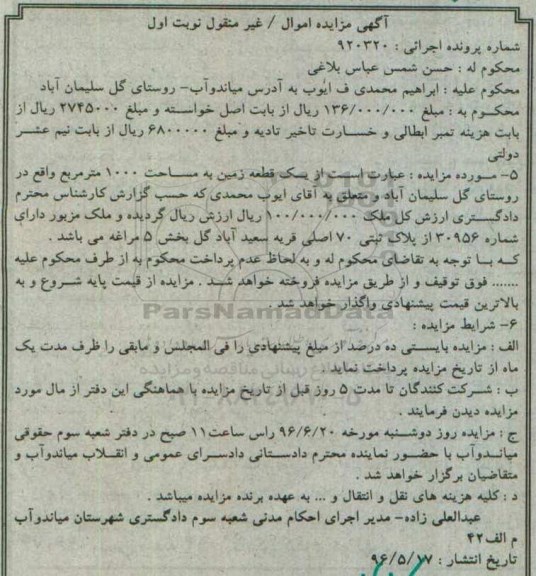 آگهی مزایده اموال / غیر منقول نوبت اول
شماره پرونده اجرائی : ۹۲۰۳۲۰
محکوم له : حسن شمس عباس بلاغی
محکوم علیه : ابراهیم محمدی ف ایوب به آدرس میاندوآب- روستای گل سلیمان آباد
محکوم به : مبلغ ۱۳۶/۰۰۰/۰۰۰ ریال از بابت اصل خواسته و مبلغ ۲۷۴۵۰۰۰ ریال از
بابت هزینه تمبر ابطالی و خسارت تاخیر تادیه و مبلغ ۶۸۰۰۰۰۰ ریال از بابت نیم عشر
دولتی
۵- مورده مزایده : عبارت است از یک قطعه زمین به مساحت ۱۰۰۰ مترمربع واقع در
روستای گل سلیمان آباد و متعلق به آقای ایوب محمدی که حسب گزارش کارشناس محترم
دادگستری ارزش کل ملک ۱۰۰/۰۰۰/۰۰۰ ریال ارزش ریال گردیده و ملک مزبور دارای
شماره ۳۰۹۵۶ از پلاک ثبتی ۷۰ اصلی قریه سعید آباد گل بخش ۵ مراغه می باشد .
که با توجه به تقاضای محکوم له و به لحاظ عدم پرداخت محکوم به از طرف محکوم علیه
....... فوق توقیف و از طریق مزایده فروخته خواهد شد . مزایده از قیمت پایه شروع و به
بالاترین قیمت پیشنهادی واگذار خواهد شد .
ParsNamadData
۶- شرایط مزایده :
الف : مزایده بایستی ده درصد از مبلغ پیشنهادی را فی المجلس و مابقی را ظرف مدت یک
ماه از تاریخ مزایده پرداخت نماید .
ب : شرکت کنندگان تا مدت ۵ روز قبل از تاریخ مزایده با هماهنگی این دفتر از مال مورد
مزایده دیدن فرمایند .
ج : مزایده روز دوشنبه مورخه ۹۶/۶/۲۰ راس ساعت۱۱ صبح در دفتر شعبه سوم حقوقی
میاندوآب با حضور نماینده محترم دادستانی دادسرای عمومی و انقلاب میاندوآب و
متقاضیان برگزار خواهد شد .
د : کلیه هزینه های نقل و انتقال و ... به عهده برنده مزایده میباشد .
عبدالعلی زاده- مدیر اجرای احکام مدنی شعبه سوم دادگستری شهرستان میاندوآب
م الف۴۲
تاریخ انتشار : ۹۶/۵/۱۷